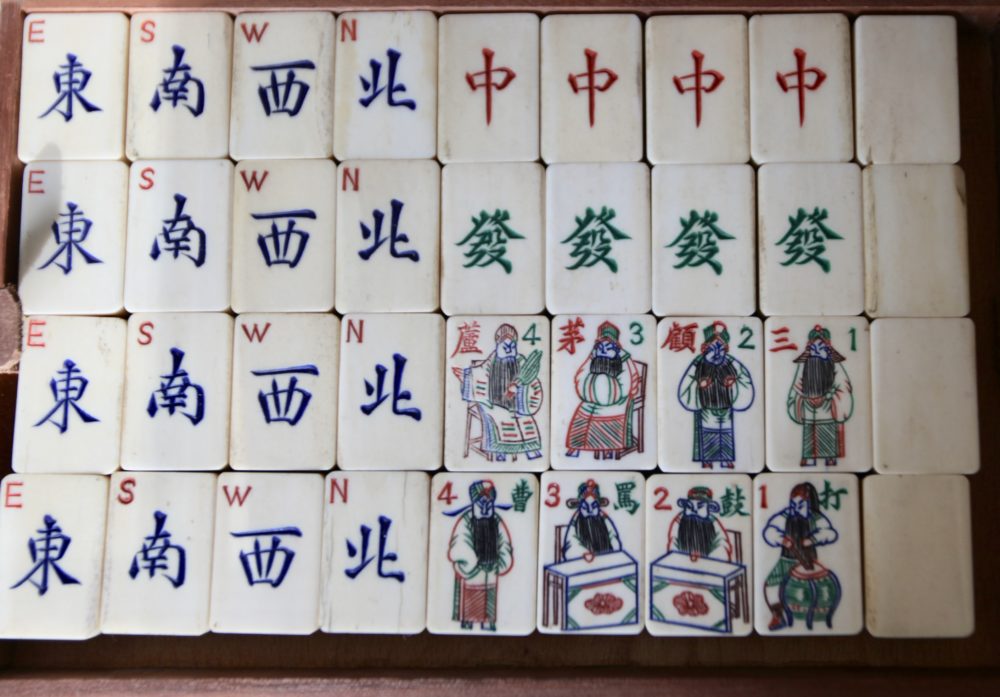 E 東 S 南 W 西 N 北 中 中 中 中
E 東 S 南 W 西 N 北 發 發 發 發
E 東 S 南 W 西 N 北 蘆 4 茅 3 顧 2 三 1
E 東 S 南 W 西 N 北 4 曹 3 罵 2 鼓 1 打